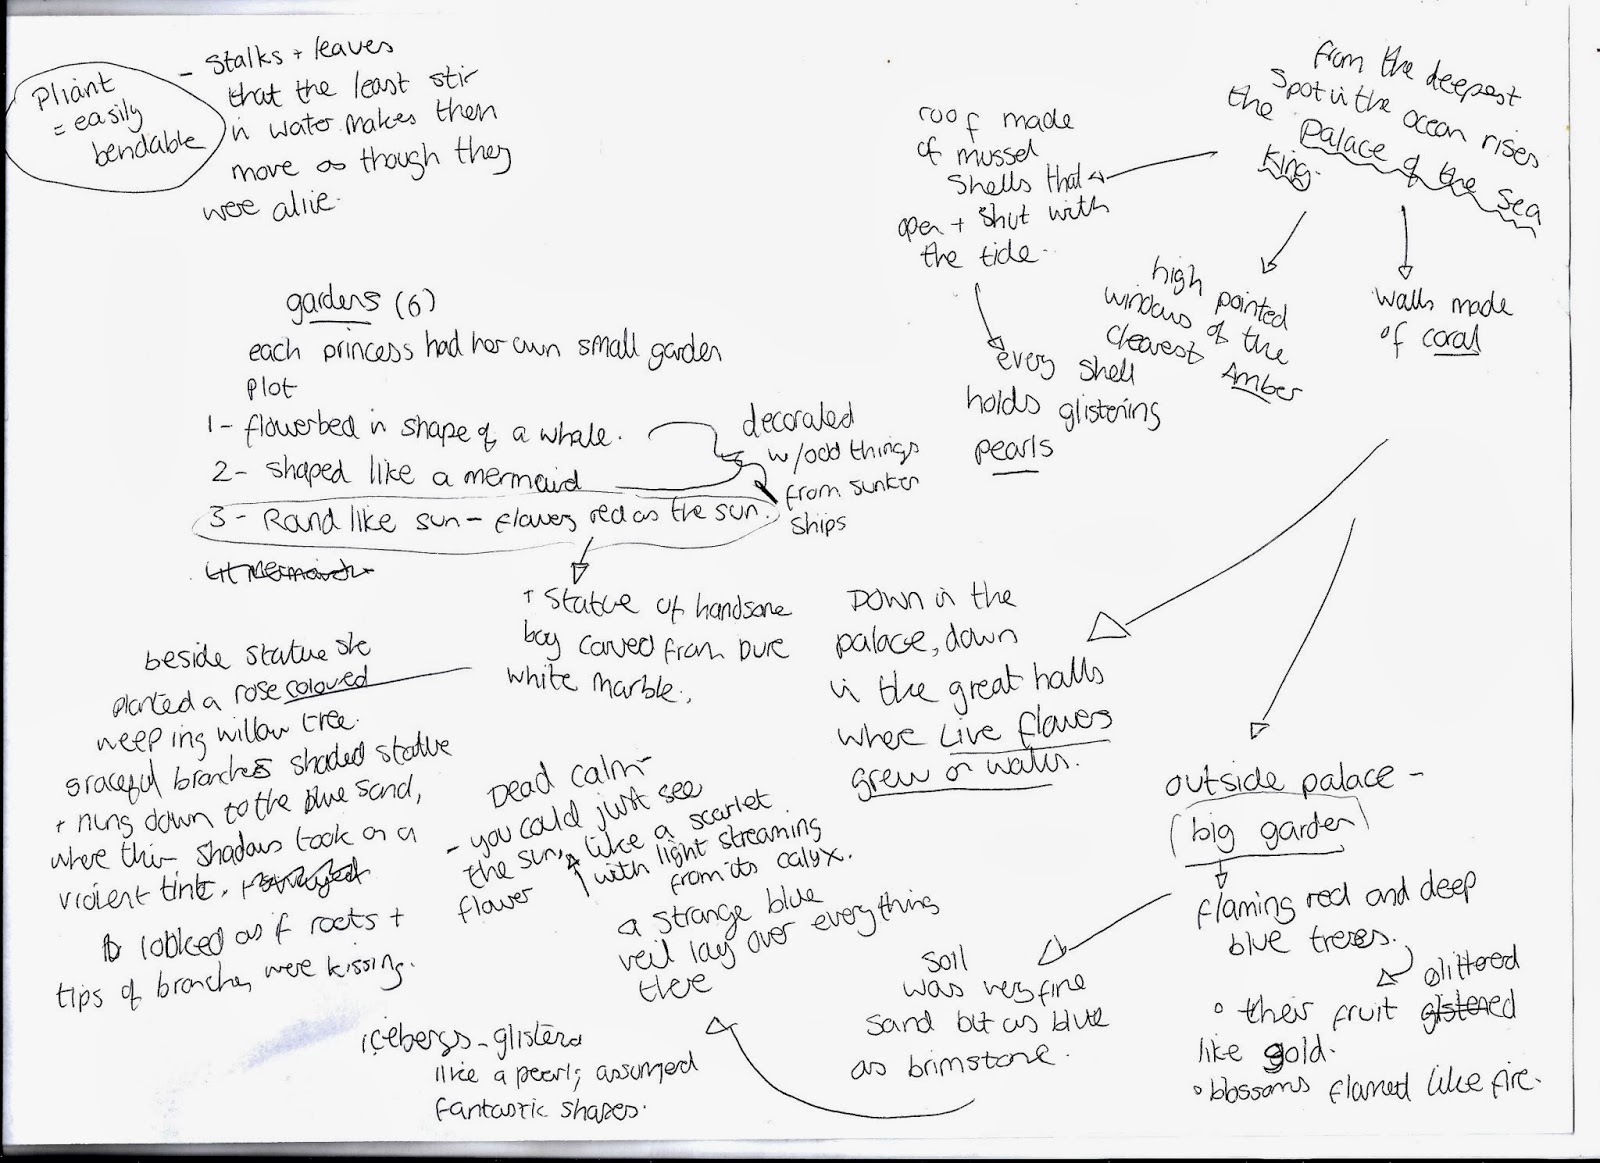 Pliant
= easily
bendable
- Stalks + leaves
that the least stir
in water makes them
move as though they
were alive.
from the deepest
spot in the ocean rises
the palace of the sea
king.
roof made
of mussel
shells that
open + shut with
the tide.
every shell
holds glistening
pearls
high pointed
windows of the
clearest Amber
walls made
of coral
gardens (6)
each princess had her own small garden
plot
1 - flowerbed in shape of a whale.
2 - shaped like a mermaid
3 - Round like sun - flowers red as the sun.
decorated
w/odd things
from sunken
ships
+ statue of handsome
boy carved from pure
white marble.
beside statue she
planted a rose coloured
weeping willow tree.
graceful branches shaded statue
+ hung down to the blue sand,
where their shadows took on a
violent tint.
looked as if roots +
tips of branches were kissing.
Down in the
palace, down
in the great halls
where live flowers
grew on walls.
outside palace -
(big garden)
flaming red and deep
blue trees.
glittered
• their fruit glistened
like gold.
• blossoms flamed like fire.
soil
was very fine
sand but as blue
as brimstone.
a strange blue
veil lay over everything
there
Dead calm -
- you could just see
the sun, like a scarlet
flower with light streaming
from its calyx.
icebergs - glistened
like a pearl, assumed
fantastic shapes.